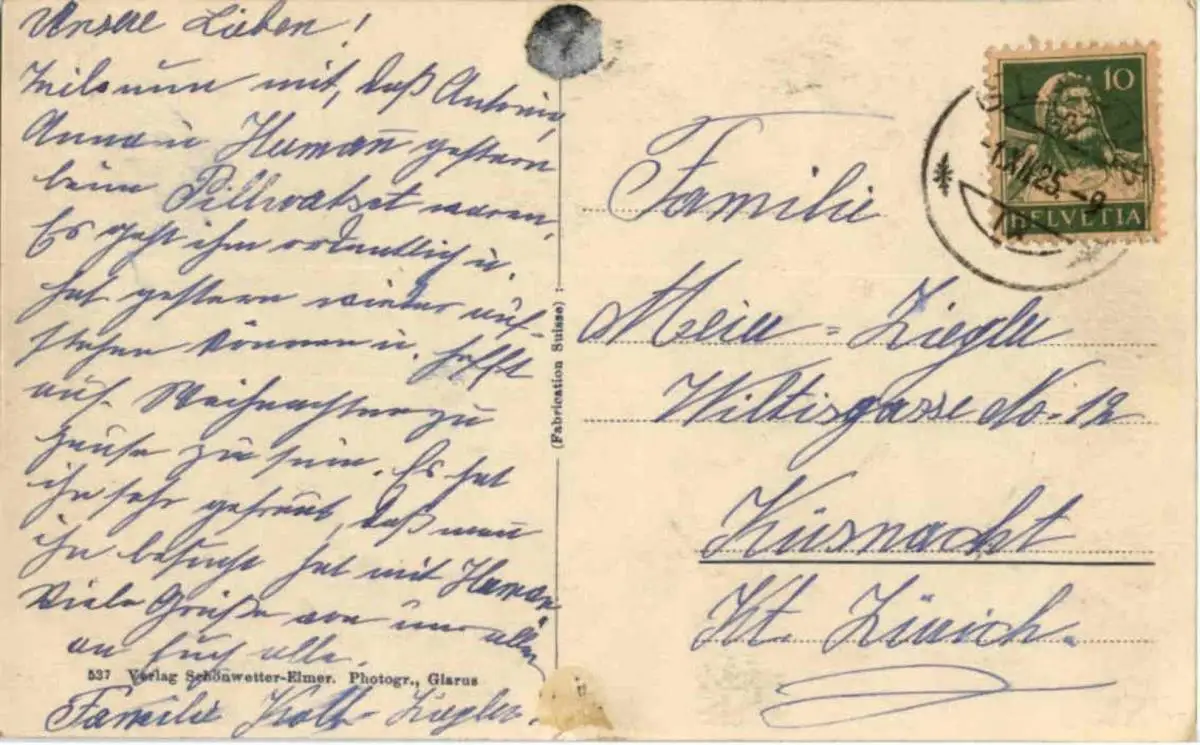 Unsere Lieben!
Teile nun mit, daß Antonie,
Anna u Hermann gestern
beim waren,
Es geht ihm ordentlich u.
hat gestern wieder auf-
stehen können u. hofft
auf Weihnachten zu
Hause zu sein. Es hat
ihn sehr gefreut, daß man
ihn besucht hat mit Herman
Viele Grüße von uns allen
an Euch alle.
Familie -Ziegler.
537 Verlag Schönwetter-Elmer. Photogr., Glarus
(Fabrication Suisse)
10
-1.XII.25.-9
HELVETIA
Familie
Meier=Ziegler
Wiltisgasse No-12
Küsnacht
Kt. Zürich.